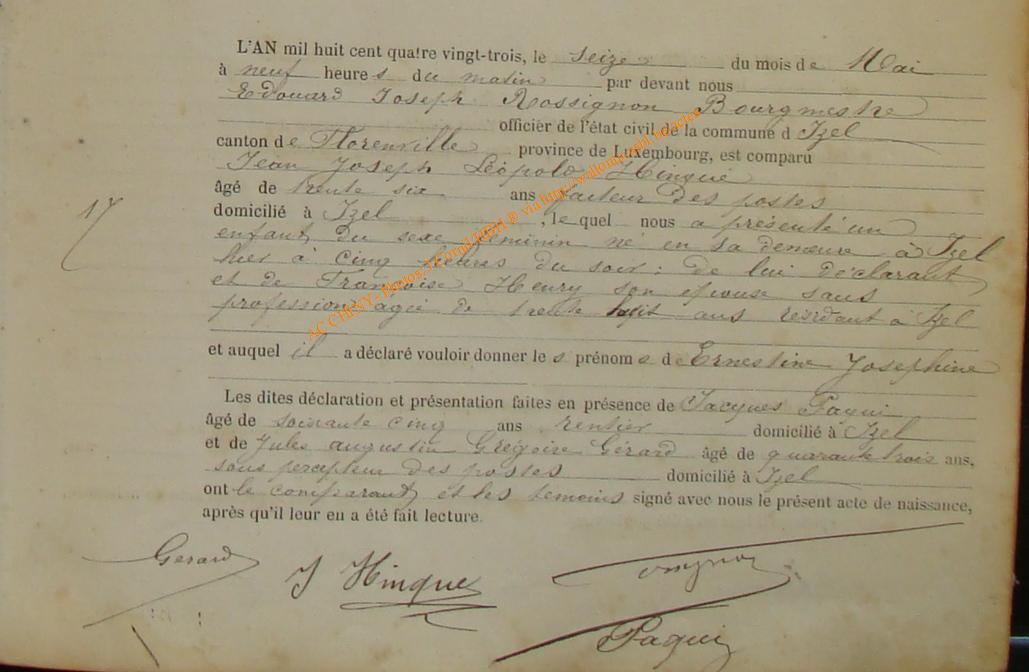 L'AN mil huit cent quatre vingt-trois, le seize du mois de Mai
à neuf heures du matin par devant nous
Edouard Joseph Rossignon Bourgmestre
officier de l'état civil de la commune d Izel
canton de Florenville province de Luxembourg, est comparu
Jean Joseph Léopold Hinque
âgé de trente six ans facteur des postes
domicilié à Izel, lequel nous a présenté un
17
enfant du sexe féminin né en sa demeure à Izel
hier à cinq heures du soir : de lui déclarant
et de Françoise Henry son épouse sans
profession âgée de trente ans résidant à Izel
et auquel il a déclaré vouloir donner les prénoms de Ernestine Joséphine
Les dites déclaration et présentation faites en présence de Jacques Paqui
âgé de soixante cinq ans rentier domicilié à Izel
et de Jules augustin Grégoire Gérard âgé de quarante trois ans,
sous percepteur des postes domicilié à Izel
ont le comparant et les témoins signé avec nous le présent acte de naissance,
après qu'il leur en a été fait lecture.
Gerard
J Hinque
Paqui